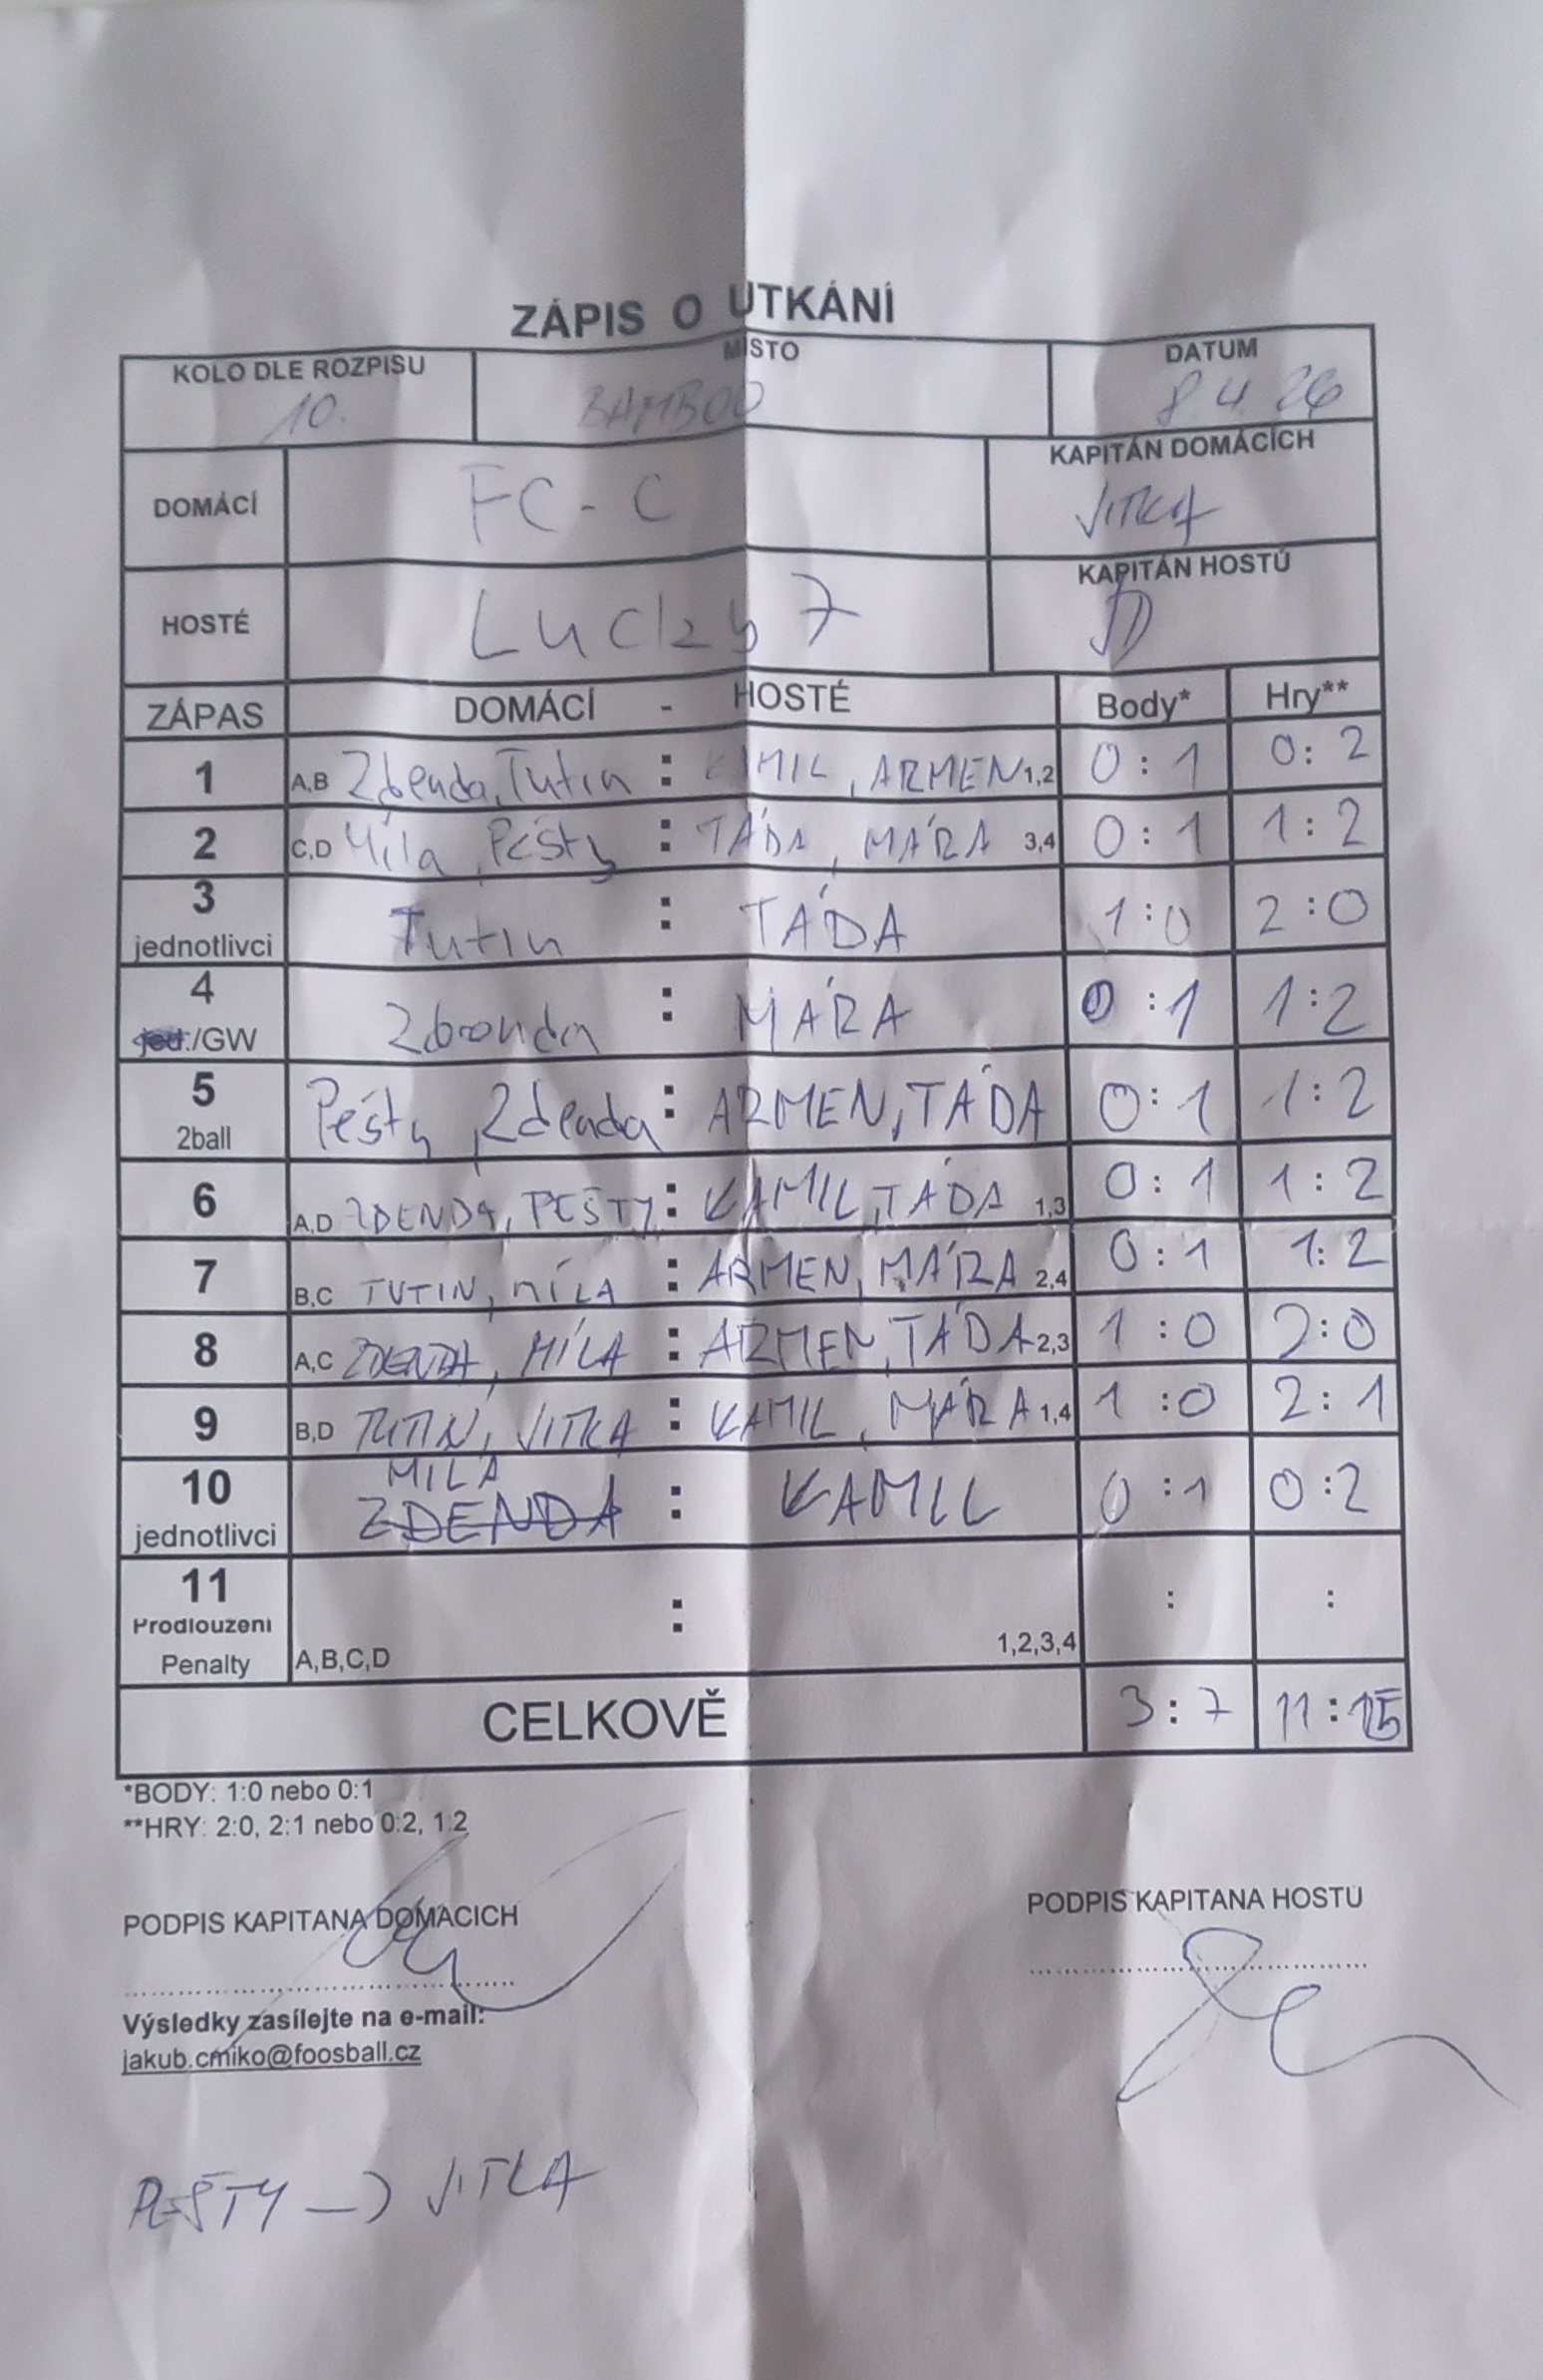 ZÁPIS O UTKÁNÍ
KOLO DLE ROZPISU MÍSTO DATUM
10. BAMBOO 8.4.26
DOMÁCÍ FC-C KAPITÁN DOMÁCÍCH
JITKA
HOSTÉ Lucky 7 KAPITÁN HOSTŮ
ZÁPAS DOMÁCÍ - HOSTÉ Body* Hry**
1 A,B Zdenda, Tutin : KAMIL, ARMEN 1,2 0:1 0:2
2 C,D Míla, Pešty : TÁDA, MÁRA 3,4 0:1 1:2
3 jednotlivci Tutin : TÁDA 1:0 2:0
4 jed./GW Zdenda : MÁRA 0:1 1:2
5 2ball Pešty, Zdenda : ARMEN, TÁDA 0:1 1:2
6 A,D ZDENDA, PEŠTY : KAMIL, TÁDA 1,3 0:1 1:2
7 B,C TUTIN, MÍLA : ARMEN, MÁRA 2,4 0:1 1:2
8 A,C ZDENDA, MÍLA : ARMEN, TÁDA 2,3 1:0 2:0
9 B,D TUTIN, JITKA : KAMIL, MÁRA 1,4 1:0 2:1
MILA
10 jednotlivci ZDENDA : KAMIL 0:1 0:2
11 Prodloužení Penalty A,B,C,D : 1,2,3,4 : :
CELKOVĚ 3:7 11:15
*BODY: 1:0 nebo 0:1
**HRY: 2:0, 2:1 nebo 0:2, 1:2
PODPIS KAPITANA DOMACICH PODPIS KAPITANA HOSTU
Výsledky zasílejte na e-mail:
jakub.cmiko@foosball.cz
PEŠTY -> JITKA